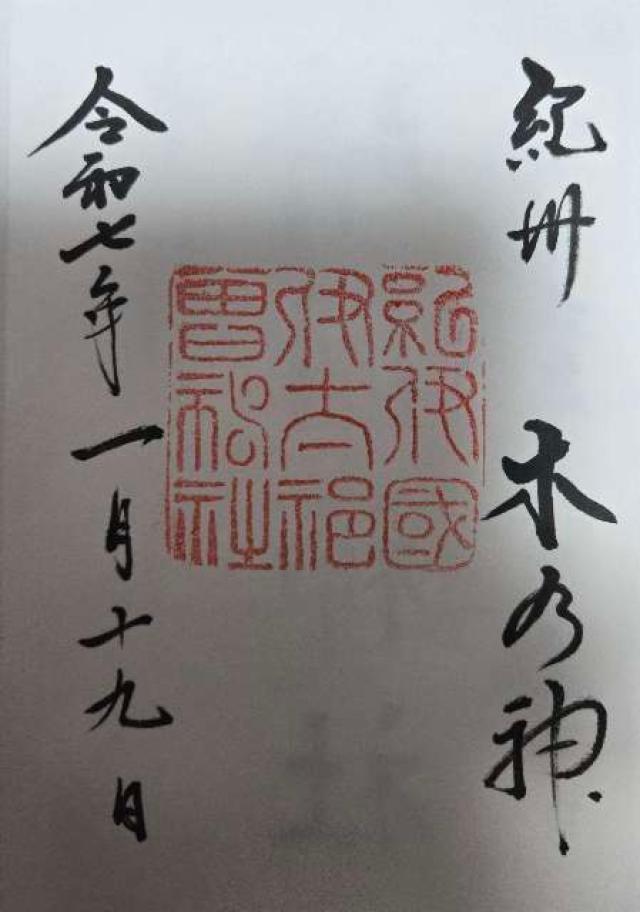 紀州 木乃神
紀伊國
伊太祁
曽神社
令和七年一月十九日